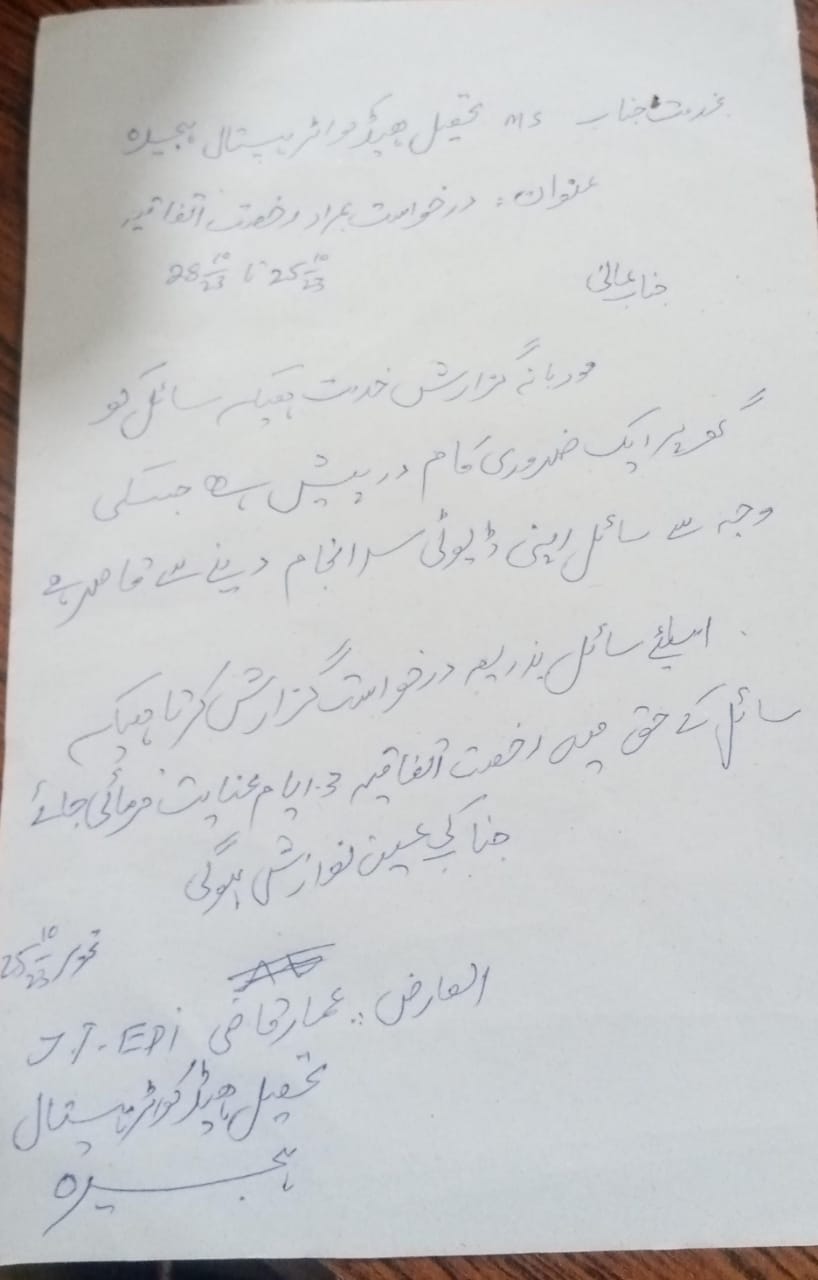 بخدمت جناب MS تحصیل ہیڈکوارٹر ہسپتال ہجیرہ
عنوان: درخواست بمراد رخصت اتفاقیہ
جناب عالی 25 10/23 تا 28 10/23
مودبانہ گزارش خدمت ہیکہ سائل کو
گھر پر ایک ضروری کام درپیش ہے جسکی
وجہ سے سائل اپنی ڈیوٹی سرانجام دینے سے قاصر ہے
اسلئے سائل بذریعہ درخواست گزارش کرتا ہیکہ
سائل کے حق میں رخصت اتفاقیہ 3 ایام عنایت فرمائی جائے
جناب کی عین نوازش ہوگی
25 10/23
العارض: عمار قاضی J.T. EPI
تحصیل ہیڈ کواٹر ہسپتال
ہجیرہ